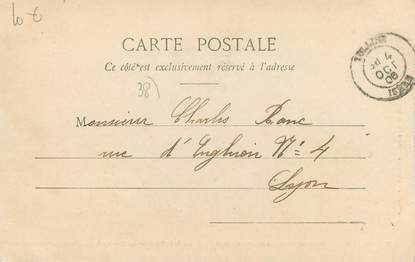 10 €
CARTE POSTALE
Ce côté est exclusivement réservé à l'adresse
38)
TULLINS
OCT
06
ISÈRE
Monsieur Charles Ranc
rue d'Enghien N° 4
Lyon